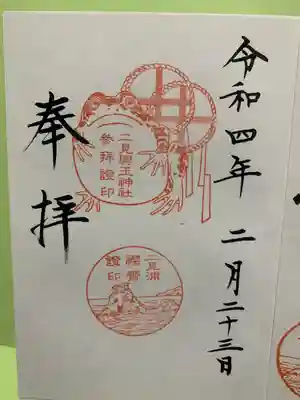 令和四年 二月二十三日
二見興玉神社
参拝證印
奉拝
二見浦
禊霊
證印